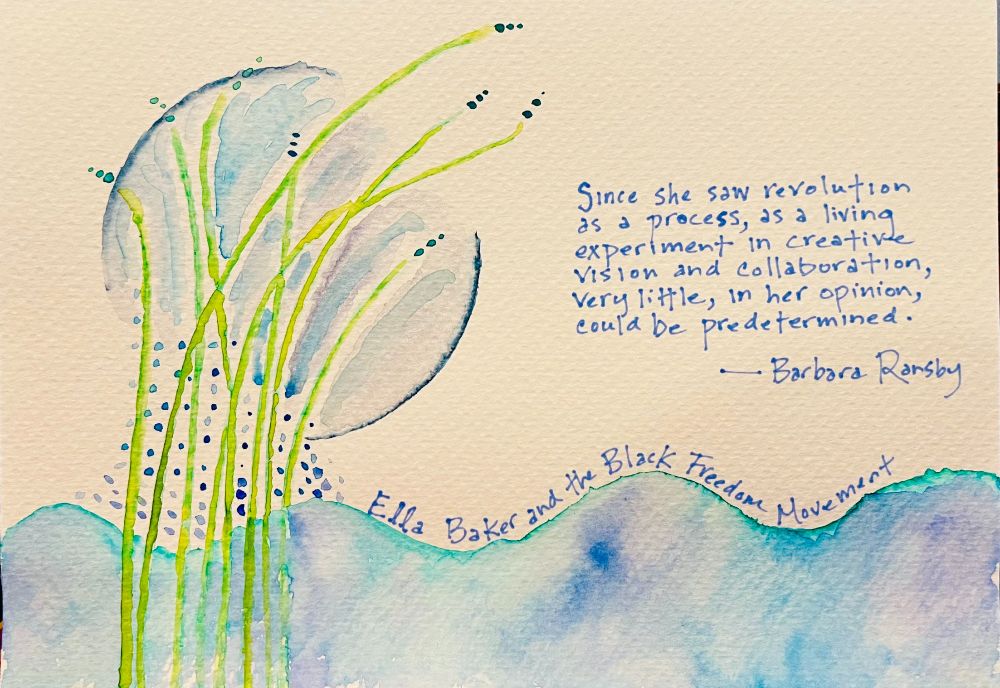 Since she saw revolution
as a process, as a living
experiment in creative
vision and collaboration,
very little, in her opinion,
could be predetermined.
— Barbara Ransby
Ella Baker and the Black Freedom Movement